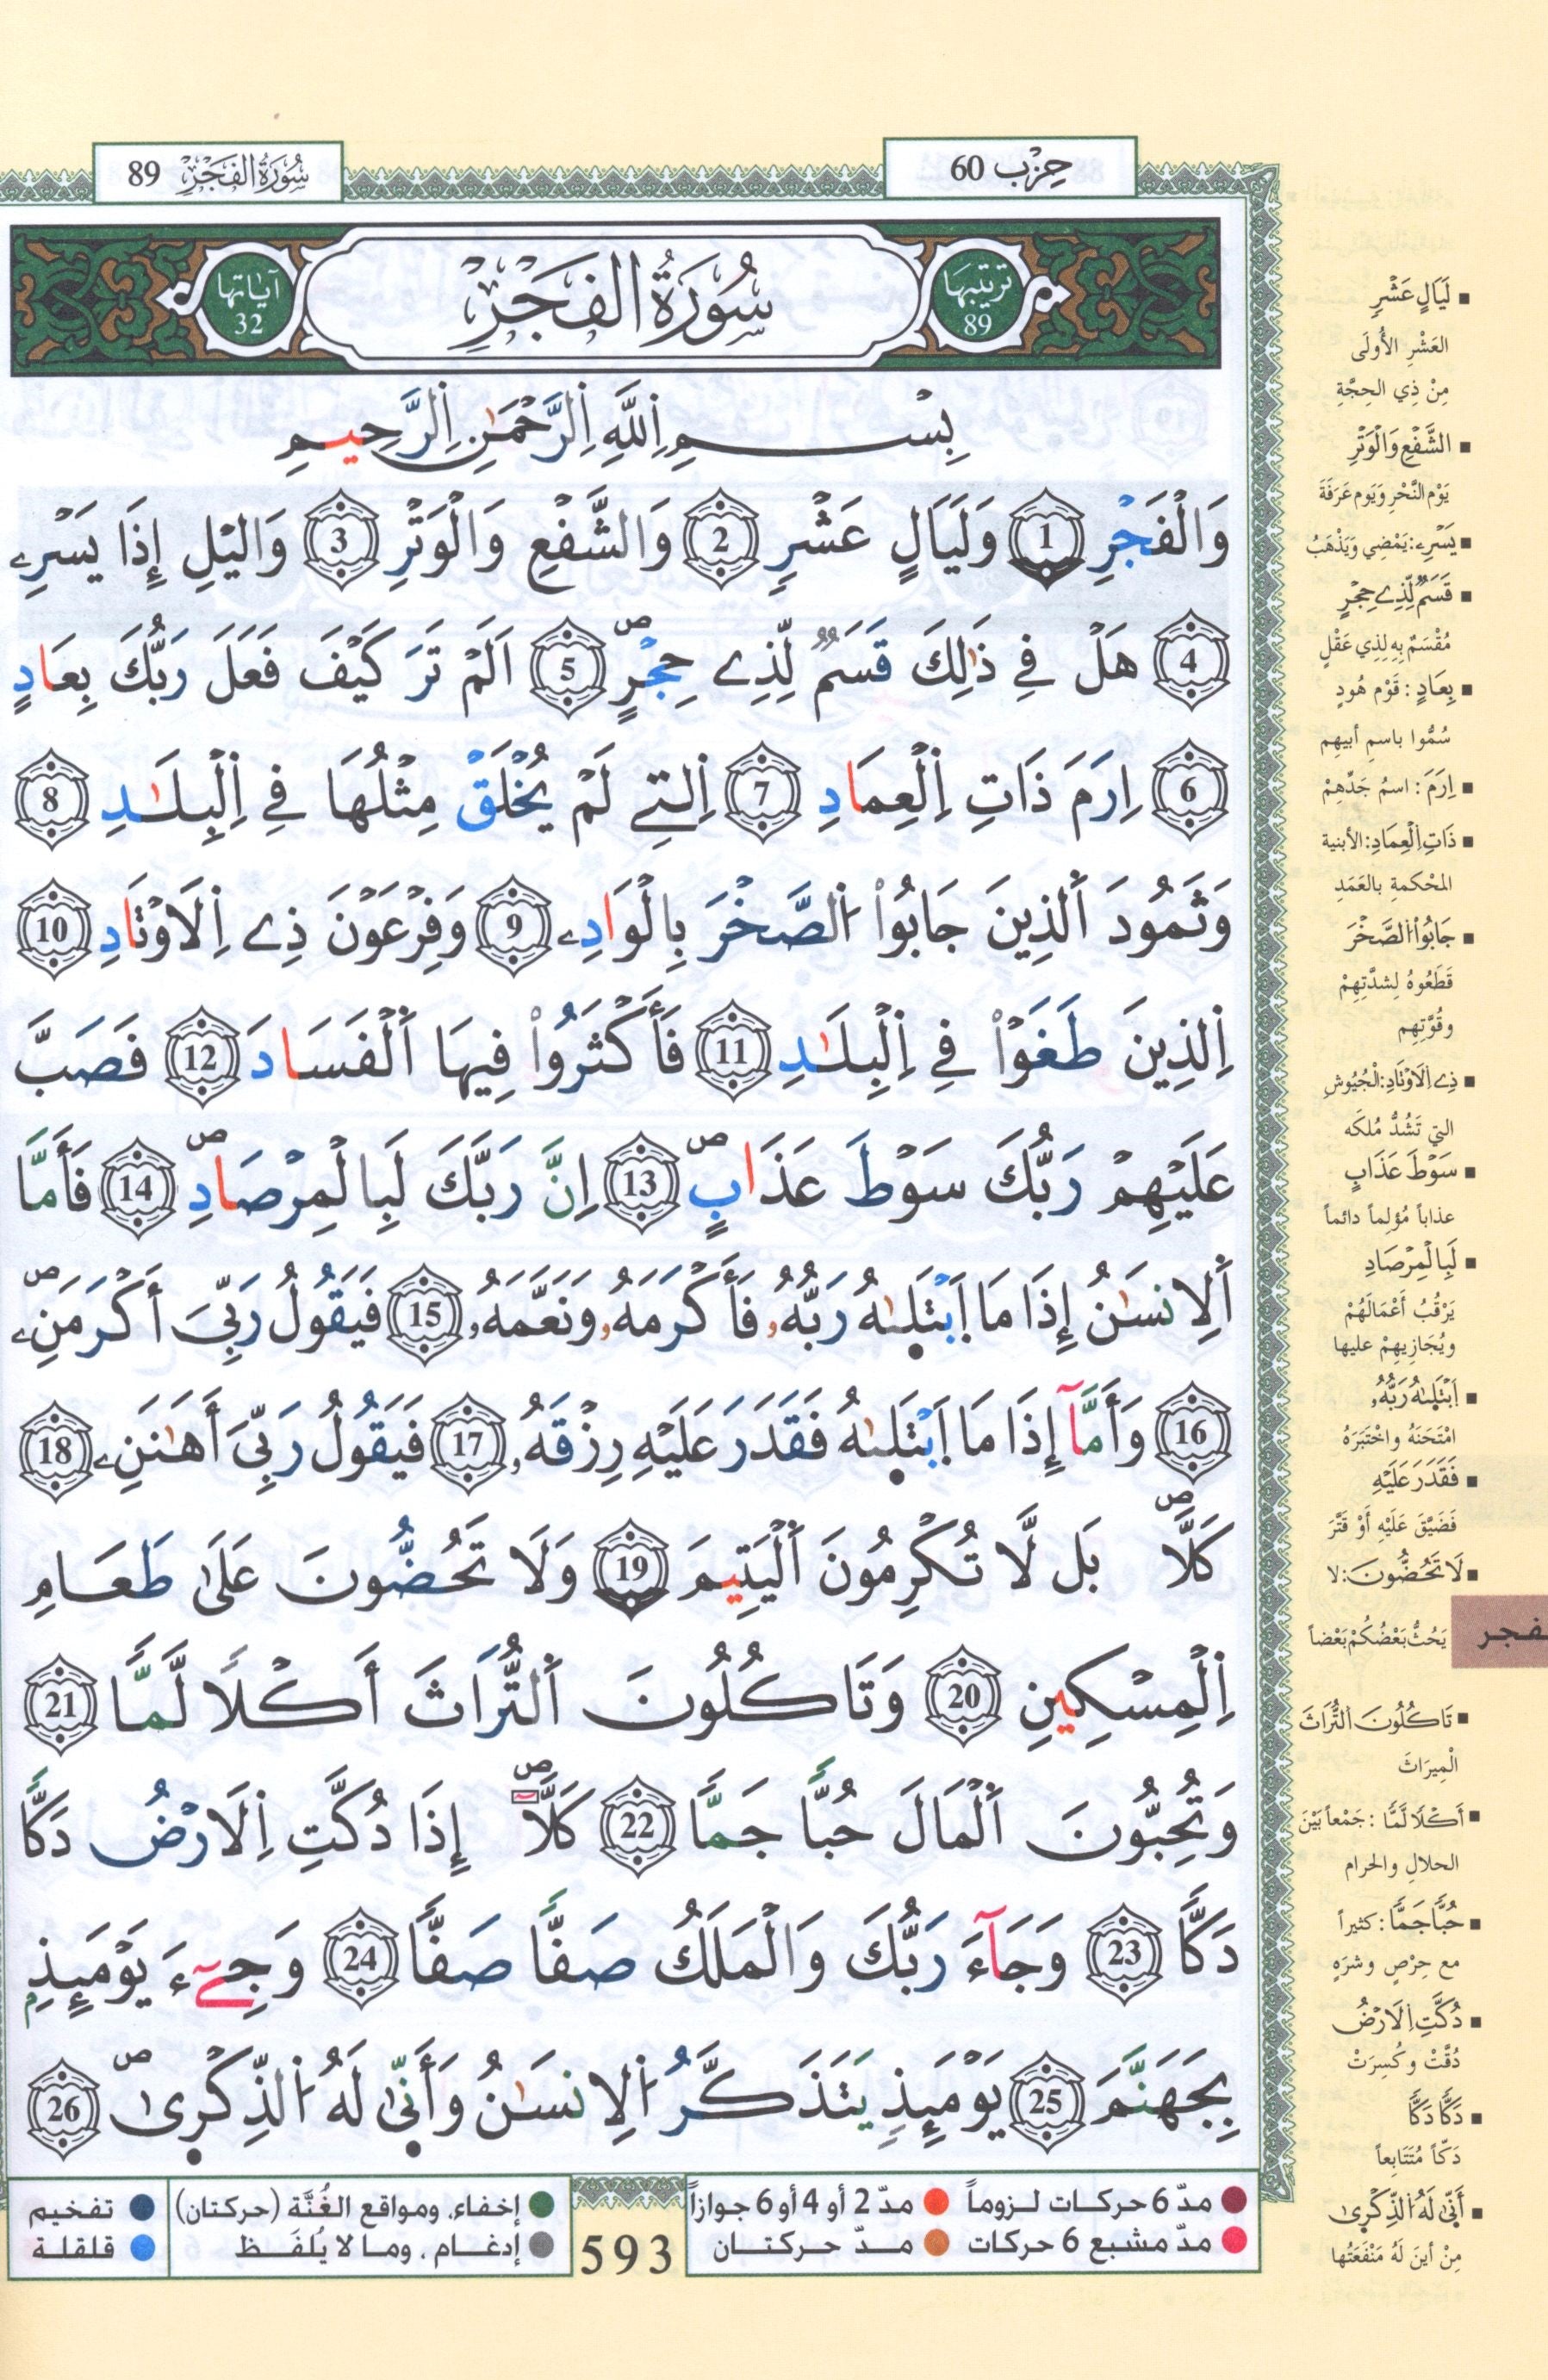 سُورَةُ الفَجْرِ 89
حِزْب 60
ترتيبها 89
سُورَةُ الفَجْرِ
آياتها 32
بِسْمِ اِ۬للَّهِ اِ۬لرَّحْمَٰنِ اِ۬لرَّحِيمِ
وَالْفَجْرِ 1 وَلَيَالٍ عَشْرٖ 2 وَالشَّفْعِ وَالْوَتْرِ 3 وَاليْلِ إِذَا يَسْرِۦ
4 هَلْ فِے ذَٰلِكَ قَسَمٞ لِّذِے حِجْرٍۖ 5 اَلَمْ تَرَ كَيْفَ فَعَلَ رَبُّكَ بِعَادٍ
6 اِرَمَ ذَاتِ اِ۬لْعِمَادِ 7 اِ۬لتِے لَمْ يُخْلَقْ مِثْلُهَا فِے اِ۬لْبِلَٰدِ 8
وَثَمُودَ اَ۬لذِينَ جَابُواْ اُ۬لصَّخْرَ بِالْوَادِۦ 9 وَفِرْعَوْنَ ذِے اِ۬لَاوْتَادِ 10
اِ۬لذِينَ طَغَوْاْ فِے اِ۬لْبِلَٰدِ 11 فَأَكْثَرُواْ فِيهَا اَ۬لْفَسَادَ 12 فَصَبَّ
عَلَيْهِمْ رَبُّكَ سَوْطَ عَذَابٍۖ 13 اِنَّ رَبَّكَ لَبِالْمِرْصَادِۖ 14 فَأَمَّا
اَ۬لِانسَٰنُ إِذَا مَا اَ۪بْتَلَيٰهُ رَبُّهُۥ فَأَكْرَمَهُۥ وَنَعَّمَهُۥ 15 فَيَقُولُ رَبِّيَ أَكْرَمَنِۦۖ
16 وَأَمَّآ إِذَا مَا اَ۪بْتَلَيٰهُ فَقَدَرَ عَلَيْهِ رِزْقَهُۥ 17 فَيَقُولُ رَبِّيَ أَهَٰنَنِۦ 18
كَلَّاۖ بَل لَّا تُكْرِمُونَ اَ۬لْيَتِيمَ 19 وَلَا تَحُضُّونَ عَلَىٰ طَعَامِ
اِ۬لْمِسْكِينِ 20 وَتَاكُلُونَ اَ۬لتُّرَاثَ أَكْلاٗ لَّمّاٗ 21
وَتُحِبُّونَ اَ۬لْمَالَ حُبّاٗ جَمّاٗ 22 كَلَّاۖ إِذَا دُكَّتِ اِ۬لَارْضُ دَكّاٗ
دَكّاٗ 23 وَجَآءَ رَبُّكَ وَالْمَلَكُ صَفّاٗ صَفّاٗ 24 وَجِےٓءَ يَوْمَئِذِۢ
بِجَهَنَّمَ 25 يَوْمَئِذٖ يَتَذَكَّرُ اُ۬لِانسَٰنُ وَأَنّ۪يٰ لَهُ اُ۬لذِّكْر۪يٰۖ 26
▪ لَيَالٍ عَشْرٍ
العَشْرِ الأُولَى
مِنْ ذِي الحِجَّةِ
▪ الشَّفْعِ وَالْوَتْرِ
يَوْم النَّحْرِ وَيَوم عَرَفَةَ
▪ يَسْرِۦ: يَمْضِي وَيَذْهَبُ
▪ قَسَمٞ لِّذِے حِجْرٍ
مُقْسَمٌ بِهِ لِذِي عَقْلٍ
▪ بِعَادٍ : قَوْم هُودٍ
سُمُّوا باسمِ أبيهِم
▪ اِرَمَ : اسمُ جَدِّهِمْ
▪ ذَاتِ اِ۬لْعِمَادِ: الأبنية
المحْكمةِ بالعَمَدِ
▪ جَابُواْ اُ۬لصَّخْرَ
قَطَعُوهُ لِشدَّتِهِمْ
وقُوَّتِهِم
▪ ذِے اِ۬لَاوْتَادِ: الْجُيُوشِ
التي تَشُدُّ مُلكَه
▪ سَوْطَ عَذَابٍ
عذاباً مُؤلِماً دائماً
▪ لَبِالْمِرْصَادِ
يَرْقُبُ أَعْمَالَهُمْ
ويُجَازِيهِمْ عليها
▪ اَ۪بْتَلَيٰهُ رَبُّهُۥ
امْتَحَنَهُ واخْتَبَرَهُ
▪ فَقَدَرَ عَلَيْهِ
فَضَيَّقَ عَلَيْهِ أوْ قَتَّرَ
▪ لَا تَحُضُّونَ: لا
يَحُثُّ بَعْضُكُمْ بَعْضاً
▪ تَاكُلُونَ اَ۬لتُّرَاثَ
الْمِيرَاثَ
▪ أَكْلاٗ لَّمّاٗ : جَمْعاً بَيْنَ
الحلالِ والحرام
▪ حُبّاٗ جَمّاٗ : كثيراً
مع حِرْصٍ وشرَهٍ
▪ دُكَّتِ اِ۬لَارْضُ
دُقَّتْ وكُسِرَتْ
▪ دَكّاٗ دَكّاٗ
دَكّاً مُتَتَابِعاً
▪ أَنّ۪يٰ لَهُ اُ۬لذِّكْر۪يٰ
مِنْ أينَ لَهُ مَنْفَعَتُها
لفجر
مدّ 6 حركـات لـزوماً
مدّ 2 أو 4 أو 6 جوازاً
مدّ مشبع 6 حركات
مـدّ حـركتـان
593
إخفاء، ومواقع الغُنَّة (حركتان)
تفخيم
إدغـام ، ومـا لا يُلفَـظ
قلقلـة